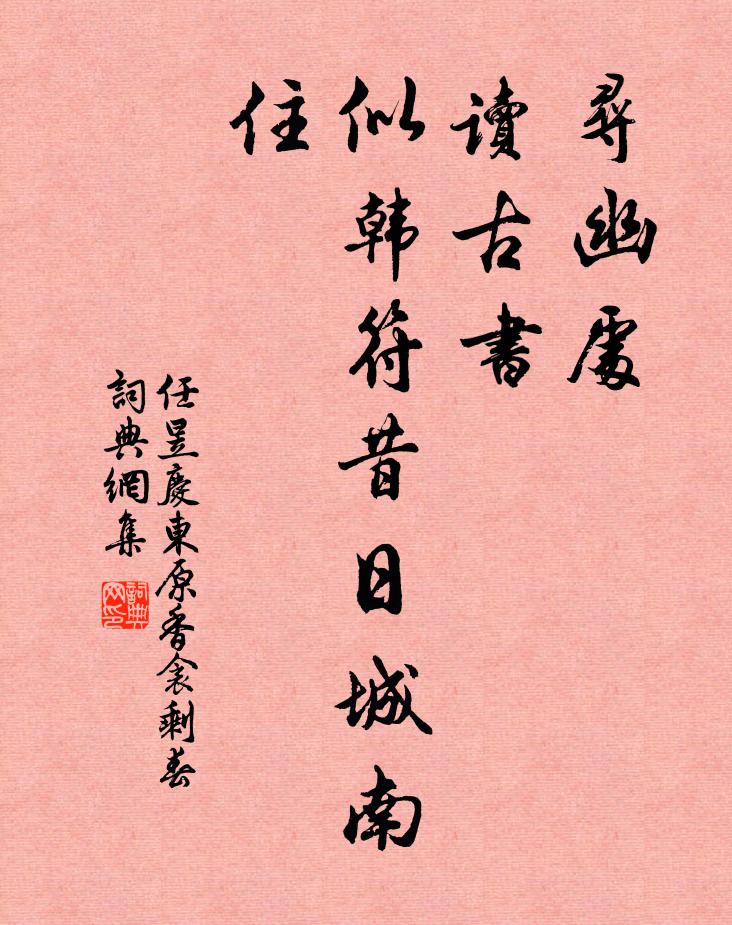 尋幽處
讀古書
似韩符昔日城南
住
任昱慶東原香奩剩春
詞典網集
詞典
网印